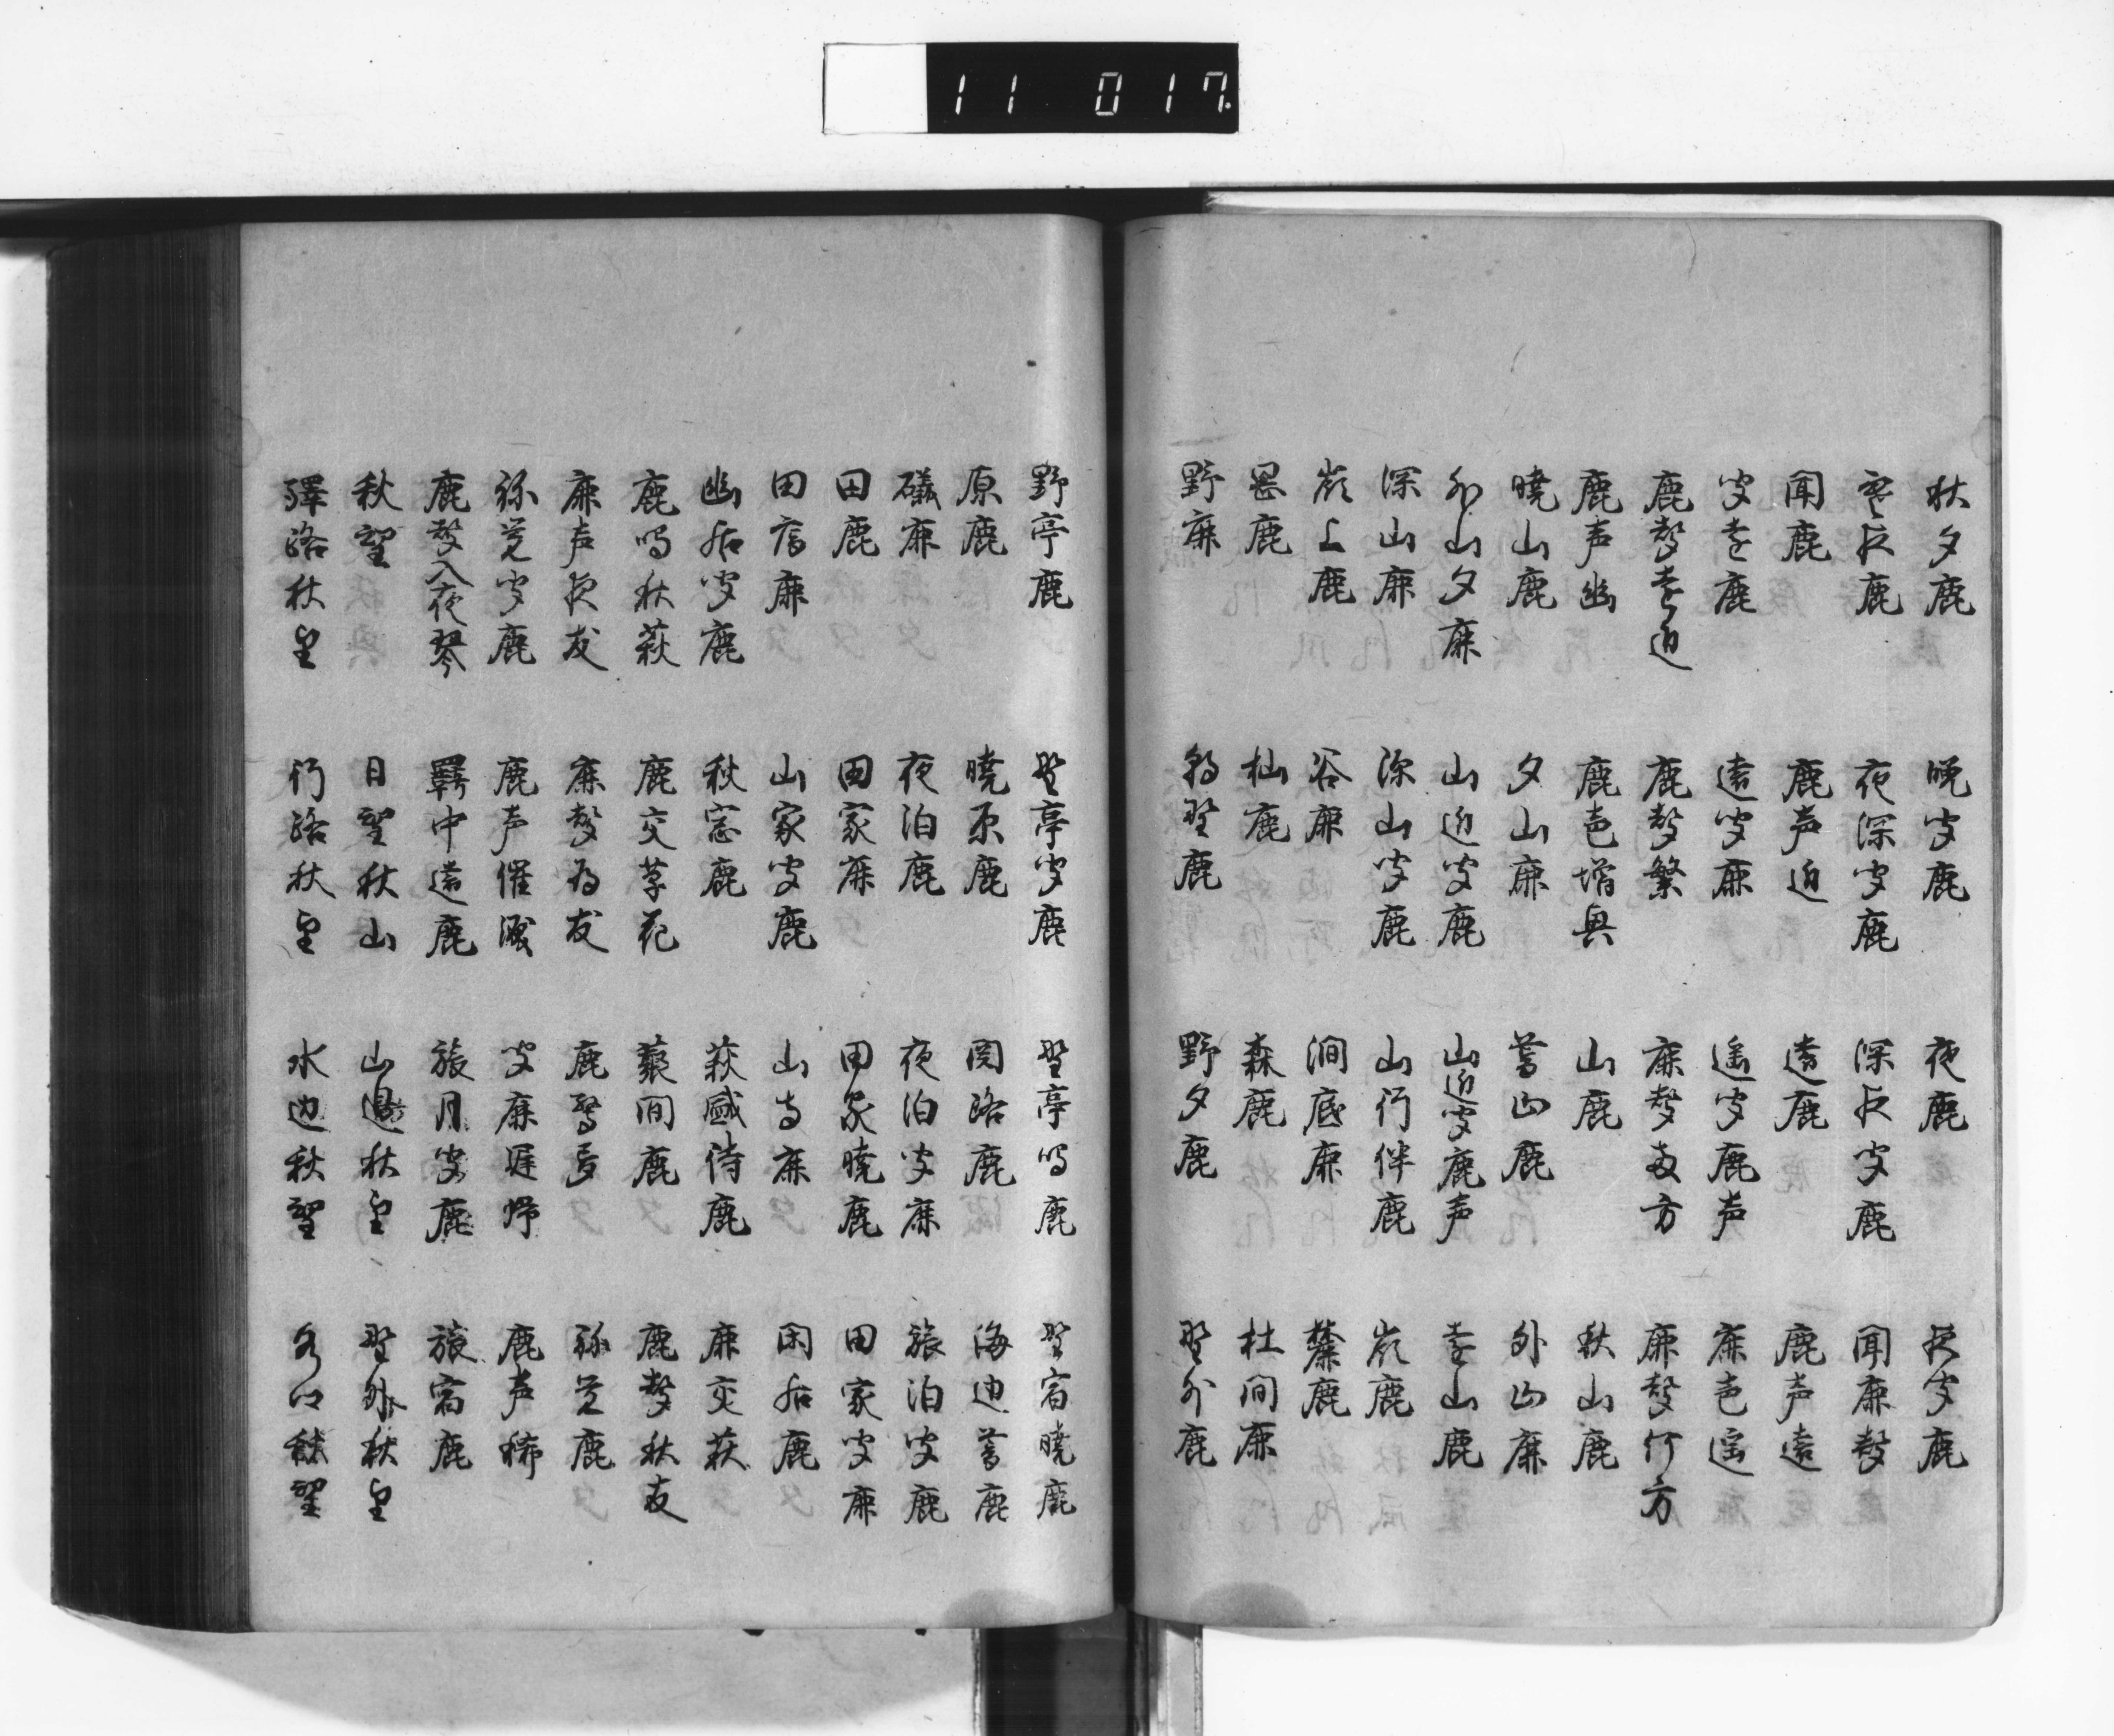 11 017
秋夕鹿 晩聞鹿 夜鹿 夜聞鹿
寒夜鹿 夜深聞鹿 深夜聞鹿 聞鹿聲
聞鹿 鹿声近 遠鹿 鹿声遠
聞遠鹿 遠聞鹿 遥聞鹿声 鹿声遥
鹿聲遠近 鹿聲繁 鹿聲両方 鹿聲何方
鹿声幽 鹿声増興 山鹿 秋山鹿
暁山鹿 夕山鹿 暮山鹿 外山鹿
外山夕鹿 山近聞鹿 山近聞鹿声 遠山鹿
深山鹿 深山聞鹿 山行伴鹿 嶺鹿
嶺上鹿 谷鹿 澗底鹿 麓鹿
岡鹿 杣鹿 森鹿 杜間鹿
野鹿 朝野鹿 野夕鹿 野外鹿
野亭鹿 野亭聞鹿 野亭鳴鹿 野宿暁鹿
原鹿 暁原鹿 関路鹿 海辺暮鹿
礒鹿 夜泊鹿 夜泊聞鹿 旅泊聞鹿
田鹿 田家鹿 田家暁鹿 田家聞鹿
山家聞鹿 山寺鹿 閑居鹿
幽居聞鹿 秋窓鹿 萩盛待鹿 鹿交萩
鹿鳴秋萩 鹿交草花 叢間鹿 鹿聲秋友
鹿声夜友 鹿聲為友 鹿驚夢 寝覚鹿
寝覚聞鹿 鹿声催涙 聞鹿遅帰 鹿声稀
鹿聲入夜琴 羇中遠鹿 旅月聞鹿 旅宿鹿
秋望 日望秋山 山邊秋望 野外秋望
驛路秋望 行路秋望 水辺秋望 名所秋望